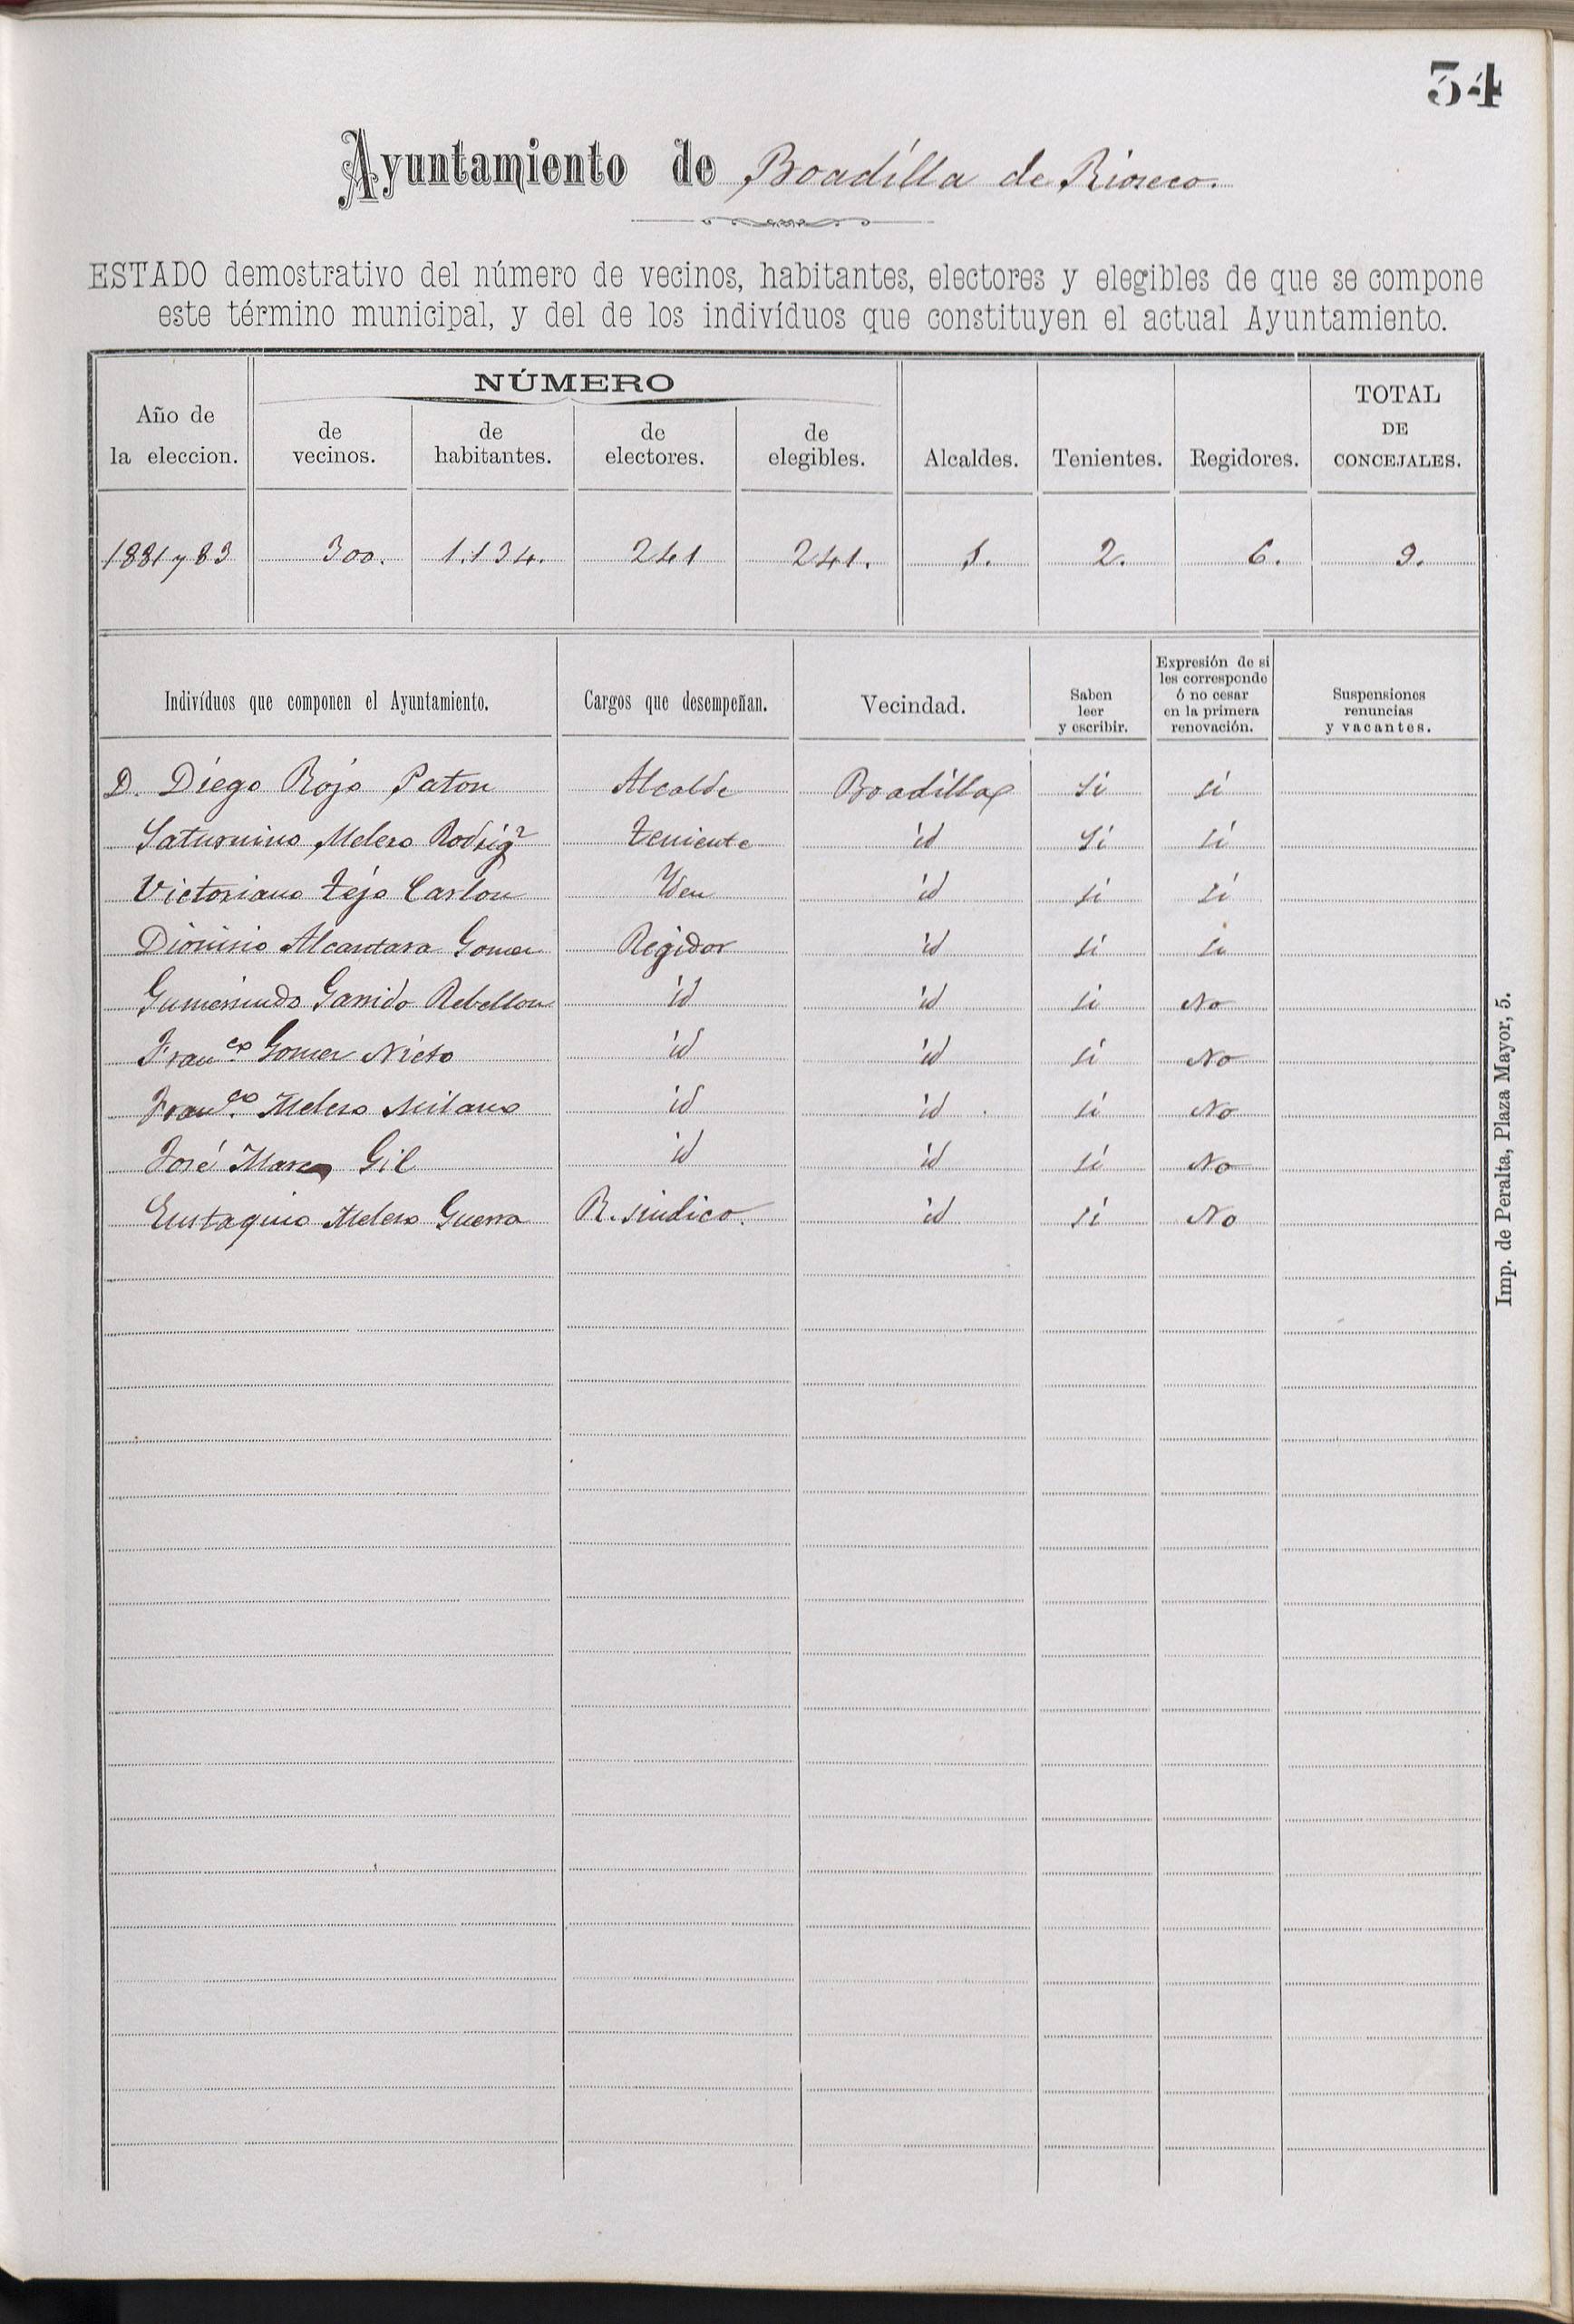 34
Ayuntamiento de Boadilla de Rioseco.
ESTADO demostrativo del número de vecinos, habitantes, electores y elegibles de que se compone
este término municipal, y del de los indivíduos que constituyen el actual Ayuntamiento.
NÚMERO
Año de la eleccion. de vecinos. de habitantes. de electores. de elegibles. Alcaldes. Tenientes. Regidores. TOTAL DE CONCEJALES.
1881 y 83 300. 1.134. 241 241. 1. 2. 6. 9.
Indivíduos que componen el Ayuntamiento. Cargos que desempeñan. Vecindad. Saben leer y escribir. Expresión de si les corresponde ó no cesar en la primera renovación. Suspensiones renuncias y vacantes.
D. Diego Rojo Paton Alcalde Boadilla Si si
Saturnino Melero Rodrigz Teniente id Si si
Victoriano Tejo Carlon Yden id si si
Dionisio Alcantara Gomez Regidor id si si
Gumersindo Garrido Rebollon id id si No
Franco Gomez Nieto id id si No
Franco Melero Milano id id si No
José Marcos Gil id id si No
Eustaquio Melero Guerra R. sindico. id si No
Imp. de Peralta, Plaza Mayor, 5.